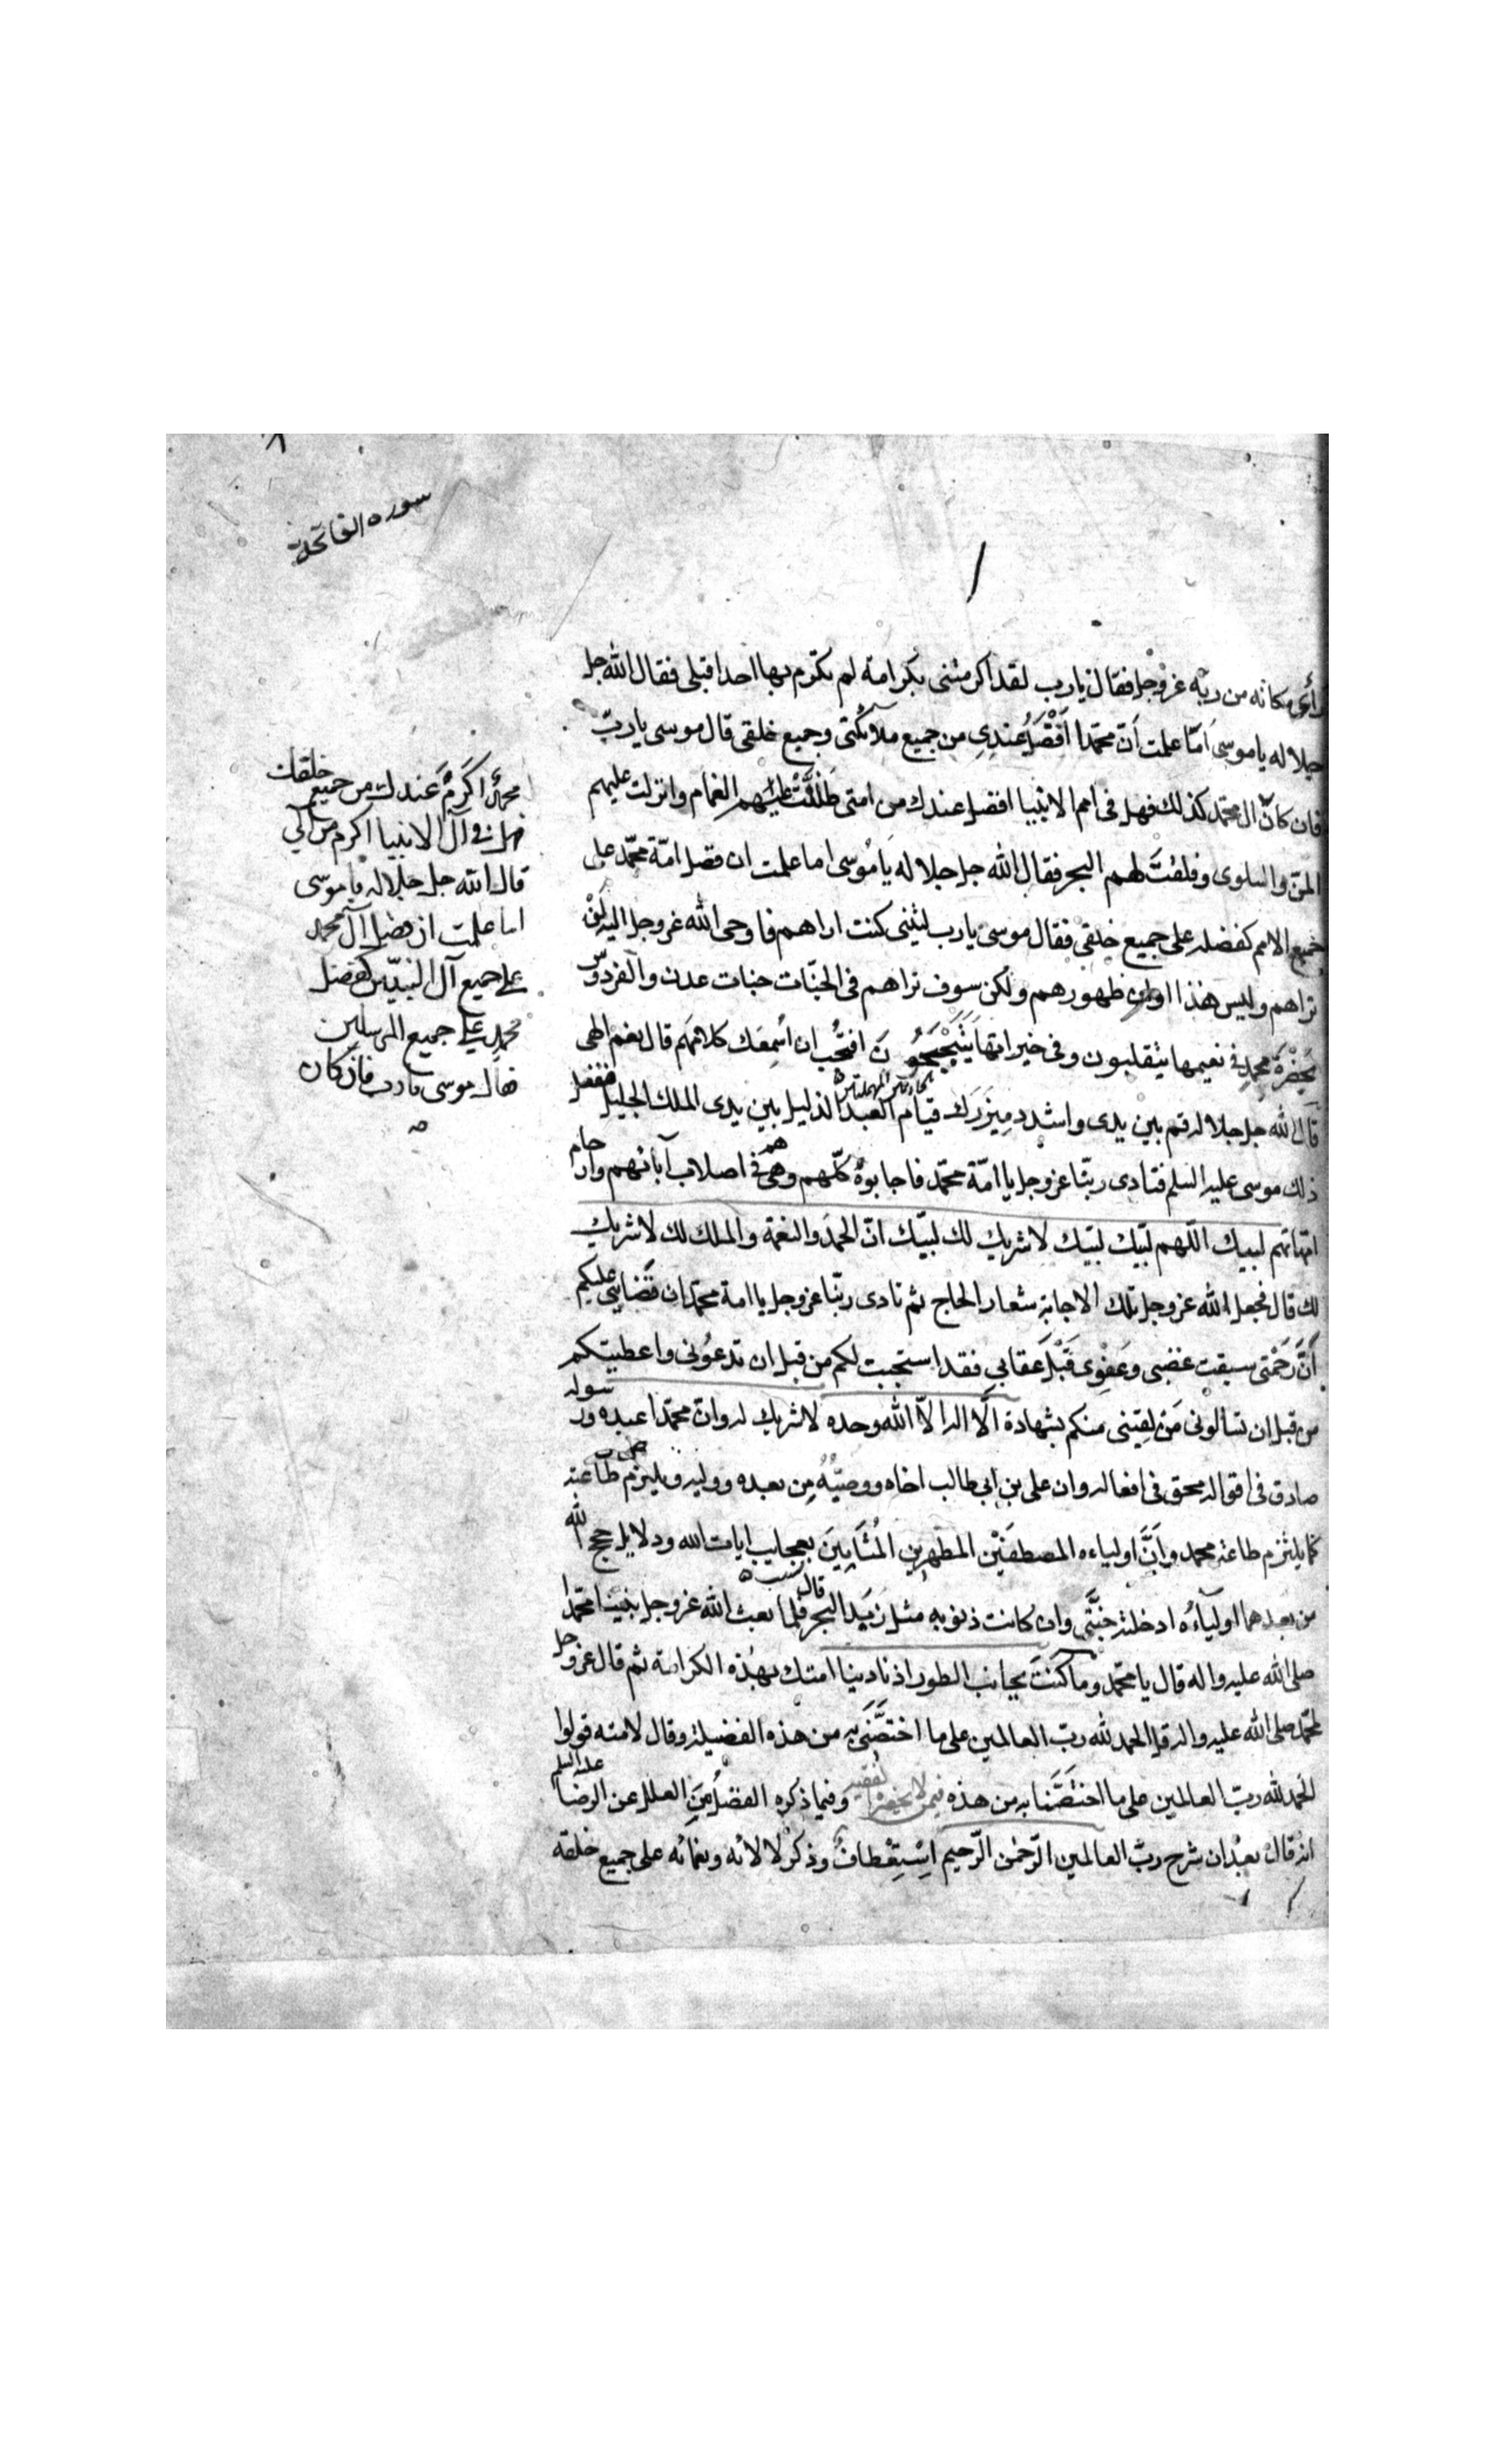 سورة الفاتحة
رأى مكانه من ربه عز وجل فقال يا رب لقد اكرمتنى بكرامة لم تكرم بها احدا قبلى فقال الله جل
جلاله يا موسى أما علمت أنّ محمّدا أفضل عندى من جميع ملائكتى وجميع خلقى قال موسى يا ربّ
فان كان ال محمّد كذلك فهل فى امم الانبيا افضل عندك من امتى ظَلَّلْتَ عليهم الغمام وانزلت عليهم
المنّ والسلوى وفلقتَ لهم البحر فقال الله جل جلاله يا مُوسى اما علمت ان فضل امّة محمّد على
جميع الامم كفضله على جميع خلقى فقال موسى يا رب ليتنى كنت اراهم فاوحى الله عز وجل اليه لن
تراهم وليس هذا اوان ظهورهم ولكن سوف تراهم فى الجنّات جنات عدن والفردوس
بحضرة محمدٍ فى نعيمها يتقلبون وفى خيراتها يَتَبَحْبَحُونَ افتُحب ان أسمعك كلامهم قال نعم الهى
قال الله جل جلاله قم بين يدى واشدد ميزرك قيام العبد الذليل بين يدى الملك الجليل ففعل
ذلك موسى عليه السلم فنادى ربّنا عز وجل يا امّة محمّد فاجابوه كلّهم وهم فى اصلاب آبائهم وارحام
امّهاتهم لبيك اللّهم لبّيك لبّيك لا شريك لك لبيّك انّ الحمدَ والنعمة والملك لك لا شريك
لك قال فجعل الله عز وجل تلك الاجابة شعار الحاج ثم نادى ربّنا عز وجل يا امة محمّد ان قضائى عليكم
أنَّ رَحمتى سبقت غضبى وعَفوى قَبْلَ عقابي فقد استجبت لكم من قبل ان تدعُونى واعطيتكم
من قبل ان تسألونى مَن لقينى منكم بشهادة ألّا اله الاّ الله وحده لا شريك له وانّ محمّدا عبده ورسوله
صادق فى اقواله محق فى افعاله وان على بن ابى طالب اخاه ووصيّهُ مِن بعده ووليه ويلتزم طاعته
كما يلتزم طاعة محمد وأنَّ اولياءه المصطفَيْن المطهرين بعجايب ايات الله ودلايل حجج الله
من بعدهما اولياءُه ادخلته جنَّتى وان كانت ذنوبه مثل زبد البحر قال فلما بعث الله عز وجل نبينا محمّدا
صلى الله عليه واله قال يا محمّد وما كنتَ بجانب الطور اذ نادينا امتك بهذه الكرامة ثم قال عز وجل
لمحمّد صلى الله عليه واله قل الحمد لله ربّ العالمين على ما اختصَّنى به من هذه الفضيلة وقال لامته قولوا
الحمد لله ربّ العالمين على ما اختصَّنا به من هذه وفيما ذكره الفضل مِنَ العلل عن الرضا عليه السلم
انه قال بعدان شرح ربّ العالمين الرّحمٰن الرّحيم اِسْتِعْطافٌ وذكرٌ لالائه ونعمائه على جميع خلقه
محمدٌ اكرمُ عندك من جميع خلقك
فهل فى آل الانبيا اكرم من آلي
قال الله جل جلاله يا موسى
اما علمت ان فضل آل محمد
على جميع آل النبيّين كفضل
محمدٍ على جميع المرسلين
فقال موسى يا رب فان كان